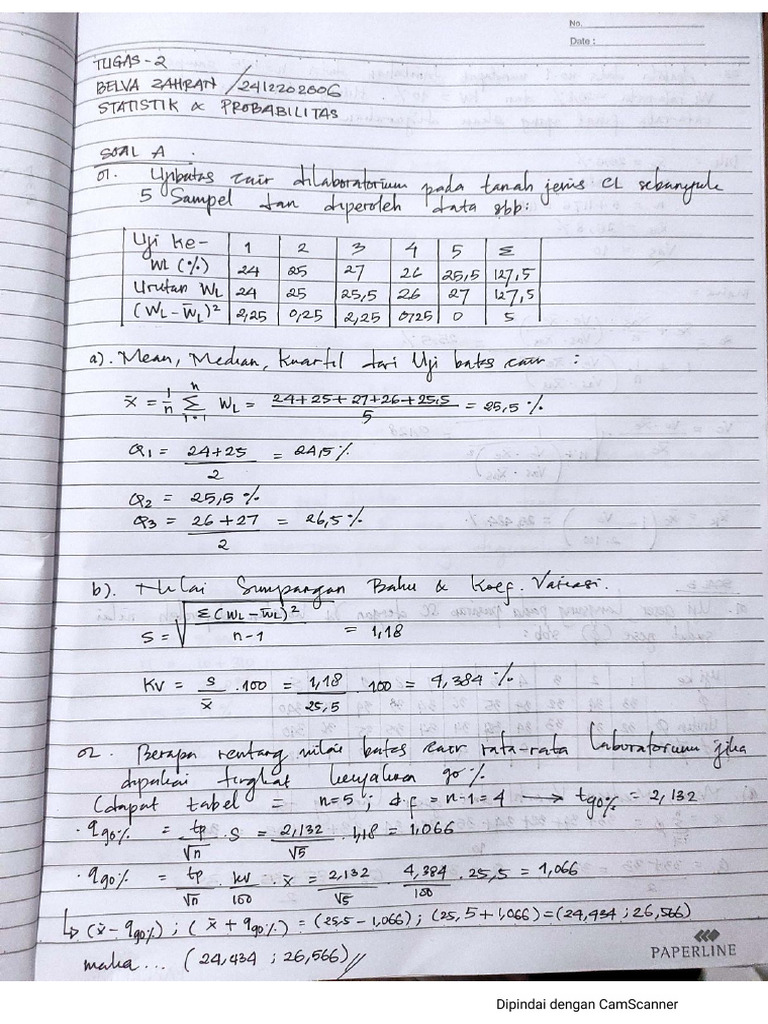 No.
Date :
TUGAS-2
BELVA ZAHRAN / 2412202006
STATISTIK & PROBABILITAS
SOAL A
01. Uji batas cair dilaboratorium pada tanah jenis CL sebanyak
5 Sampel dan diperoleh data sbb:
Uji ke- 1 2 3 4 5 Σ
WL (%) 24 25 27 26 25,5 127,5
Urutan WL 24 25 25,5 26 27 127,5
(WL - W̄L)² 2,25 0,25 2,25 0,25 0 5
a). Mean, Median, Kuartil dari Uji batas cair :
x̄ = 1/n Σ WL = 24+25+27+26+25,5 / 5 = 25,5 %
Q1 = 24+25 / 2 = 24,5 %
Q2 = 25,5 %
Q3 = 26+27 / 2 = 26,5 %
b). Nilai Simpangan Baku & Koef. Variasi.
S = √ Σ(WL - W̄L)² / n-1 = 1,18
KV = s / x̄ . 100 = 1,18 / 25,5 . 100 = 4,384 %
02. Berapa rentang nilai batas cair rata-rata laboratorium jika
dipakai tingkat keyakinan 90 %
(dapat tabel = n=5 ; d.f = n-1 = 4 → t90% = 2,132
· q90% = tp / √n . S = 2,132 / √5 . 1,18 = 1,066
· q90% = tp / √n . kv / 100 . x̄ = 2,132 / √5 . 4,384 / 100 . 25,5 = 1,066
↳ (x̄ - q90%) ; (x̄ + q90%) = (25,5 - 1,066) ; (25,5 + 1,066) = (24,434 ; 26,566)
maka... (24,434 ; 26,566) //
PAPERLINE
Dipindai dengan CamScanner